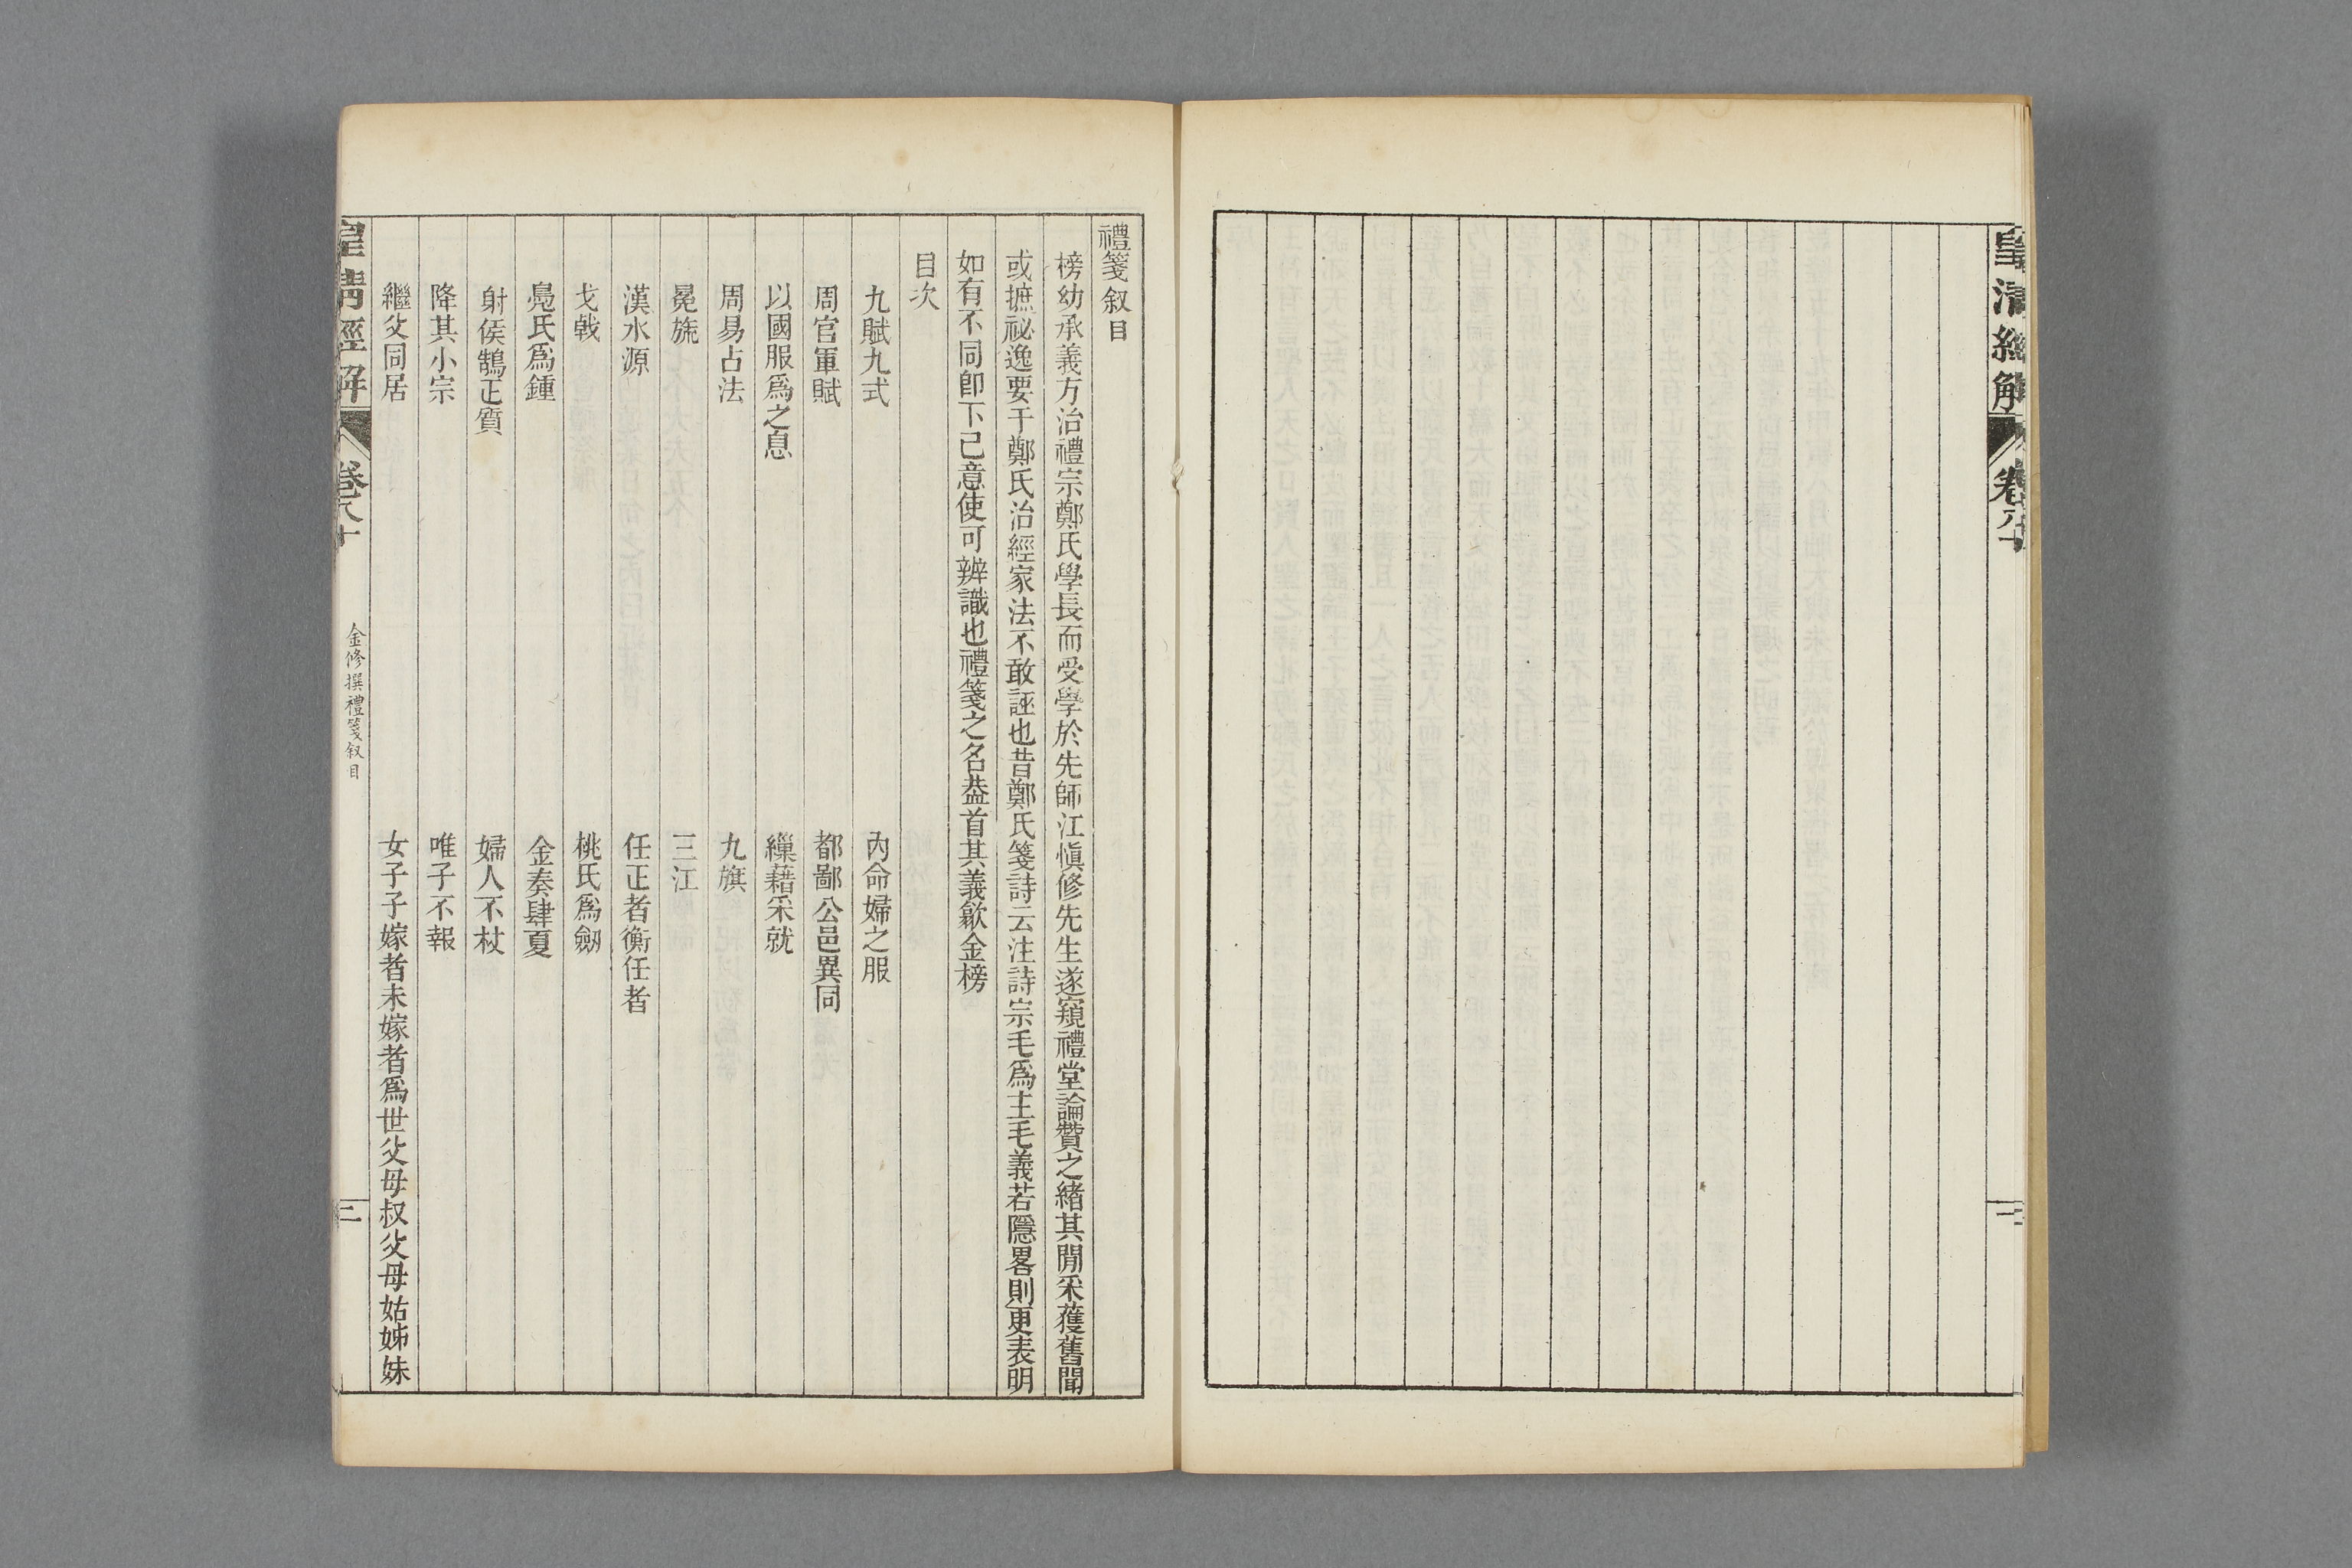 皇清經解
卷八十
一
禮箋叙目
榜幼承義方治禮宗鄭氏學長而受學於先師江愼修先生遂窺禮堂論贊之緖其閒采獲舊聞
或摭祕逸要于鄭氏治經家法不敢誣也昔鄭氏箋詩云注詩宗毛爲主毛義若隱畧則更表明
如有不同卽下己意使可辨識也禮箋之名葢首其義歙金榜
目次
九賦九式　內命婦之服
周官軍賦　都鄙公邑異同
以國服爲之息　繅藉采就
周易占法　九旗
冕旒　三江
漢水源　任正者衡任者
戈戟　桃氏爲劒
鳧氏爲鍾　金奏肆夏
射侯鵠正質　婦人不杖
降其小宗　唯子不報
繼父同居　女子子嫁者未嫁者爲世父母叔父母姑姊妹
皇淸經解
卷八十
金修撰禮箋叙目
二